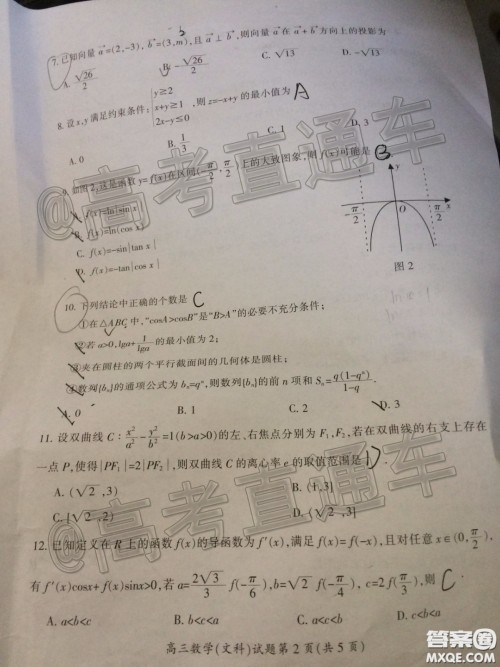 7. 已知向量 a=(2,-3), b=(3,m), 且 a⊥b, 则向量 a 在 a+b 方向上的投影为
A. √26/2 B. -√26/2 C. √13 D. -√13
8. 设 x,y 满足约束条件: {y≥2 x+y≥1 2x-y≤0, 则 z=-x+y 的最小值为 A
A. 0 B. 1/3 C. 1 D. 3
9. 如图2, 这是函数 y=f(x)在区间(-π/2, π/2)上的大致图象, 则 f(x)可能是 B
A. f(x)=ln|sin x|
B. f(x)=ln(cos x)
C. f(x)=-sin|tan x|
D. f(x)=-tan|cos x|
-π/2 O π/2 x y
图2
10. 下列结论中正确的个数是 C
①在△ABC 中, "cosA>cosB"是"B>A"的必要不充分条件;
②若 a>0, lga+1/lga 的最小值为 2;
③夹在圆柱的两个平行截面间的几何体是圆柱;
④数列{bₙ}的通项公式为 bₙ=qⁿ, 则数列{bₙ}的前 n 项和 Sₙ=q(1-qⁿ)/1-q.
A. 0 B. 1 C. 2 D. 3
11. 设双曲线 C: x²/a²-y²/b²=1(b>a>0)的左、右焦点分别为 F₁,F₂, 若在双曲线的右支上存在
一点 P, 使得|PF₁|=2|PF₂|, 则双曲线 C 的离心率 e 的取值范围是 D.
A. (√2,3) B. (1,3]
C. [√2,2) D. (√2,3]
12. 已知定义在 R 上的函数 f(x)的导函数为 f′(x), 满足 f(x)=f(-x), 且对任意 x∈(0,π/2),
有 f′(x)cosx+f(x)sinx>0, 若 a=2√3/3 f(-π/6), b=√2 f(-π/4), c=2f(π/3), 则 C.
A. a<b<c B. a<c<b C. c<b<a D. c<a<b
高三数学(文科)试题第 2 页(共 5 页)
@高考直通车
@高考直通车
答案圈
MXQE.COM